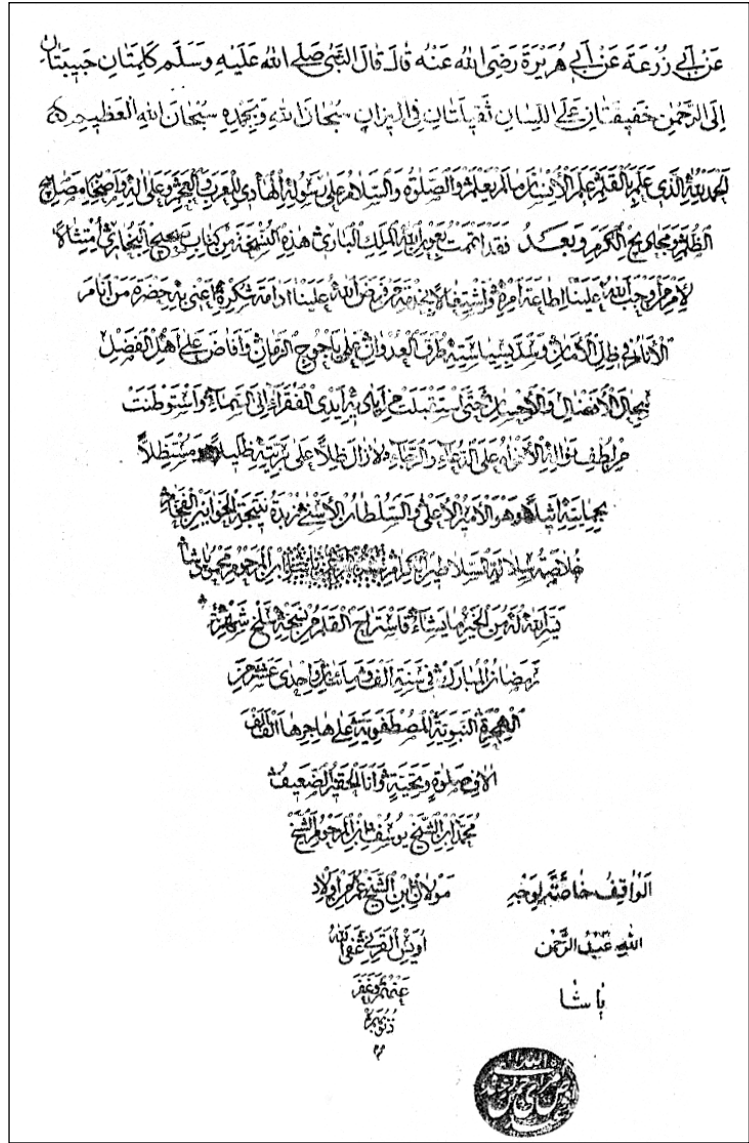 عَنْ أَبِي زُرْعَةَ عَنْ أَبِي هُرَيْرَةَ رَضِيَ اللهُ عَنْهُ قَالَ قَالَ النَّبِيُّ صَلَّى اللهُ عَلَيْهِ وَسَلَّمَ كَلِمَتَانِ حَبِيبَتَانِ
إِلَى الرَّحْمٰنِ خَفِيفَتَانِ عَلَى اللِّسَانِ ثَقِيلَتَانِ فِي الْمِيزَانِ سُبْحَانَ اللهِ وَبِحَمْدِهِ سُبْحَانَ اللهِ الْعَظِيمِ
الحمد لله الذي علم بالقلم علم الانسان ما لم يعلم والصلوة والسلام على رسوله الهادي للعرب والعجم وعلى اله واصحابه مصابيح
الظلم ومجاديح الكرم وبعد فقد اتممت بعون الله الملك الباري هذه النسخة من كتاب صحيح البخاري امتثالا
لامر من اوجب الله علينا اطاعة امره واشتغالا بخدمة من فرض الله علينا ادامة شكره اعني به حضرة من انام
الانام في ظل الامان وسد بسياسته طرق العدوان على ياجوج الزمان وافاض على اهل الفضل
سجال الافضال والاحسان حتى استقبلت من اياديه ايدي الفقراء الى السماء واستوطنت
من لطف نواله الافواه على الدعاء والرجاء لا زال ظلا على بريته ظليلا مستظلا
بحمايته وهو الامير الاعلى والسلطان الاسنى زبدة نتيجة الخوانين الفخام
خلاصة سلالة السلاطين الكرام ابن المرحوم محمود پاشا
يسر الله له من الخير ما يشاء فاستراح القلم من نسخه سلخ شهر
رمضان المبارك في سنة الف ومائتين واحدى عشر من
الهجرة النبوية المصطفوية على هاجرها الف الف
الاف صلوة وتحية وانا الحقير الضعيف
محمد ابن الشيخ يوسف ابن المرحوم الشيخ
مولان ابن الشيخ عمر من اولاد
الواقف خاصة لوجه
اويس القرني عفى الله
الله عبد الرحمن
عنهم وغفر
پاشا
ذنوبهم
م